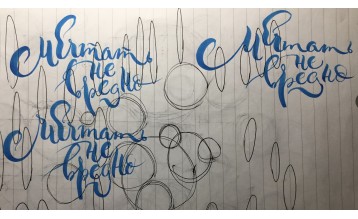 Мечтать
не
вредно
Мечтать
не
вредно
Мечтать
не
вредно